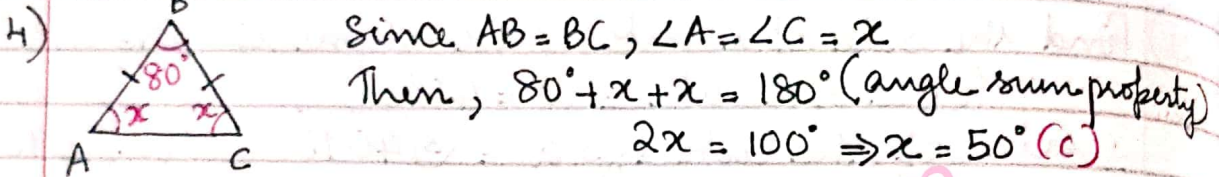 4)
B
80°
x x
A C
Since AB = BC, ∠A = ∠C = x
Then, 80° + x + x = 180° (angle sum property)
2x = 100° ⇒ x = 50° (C)